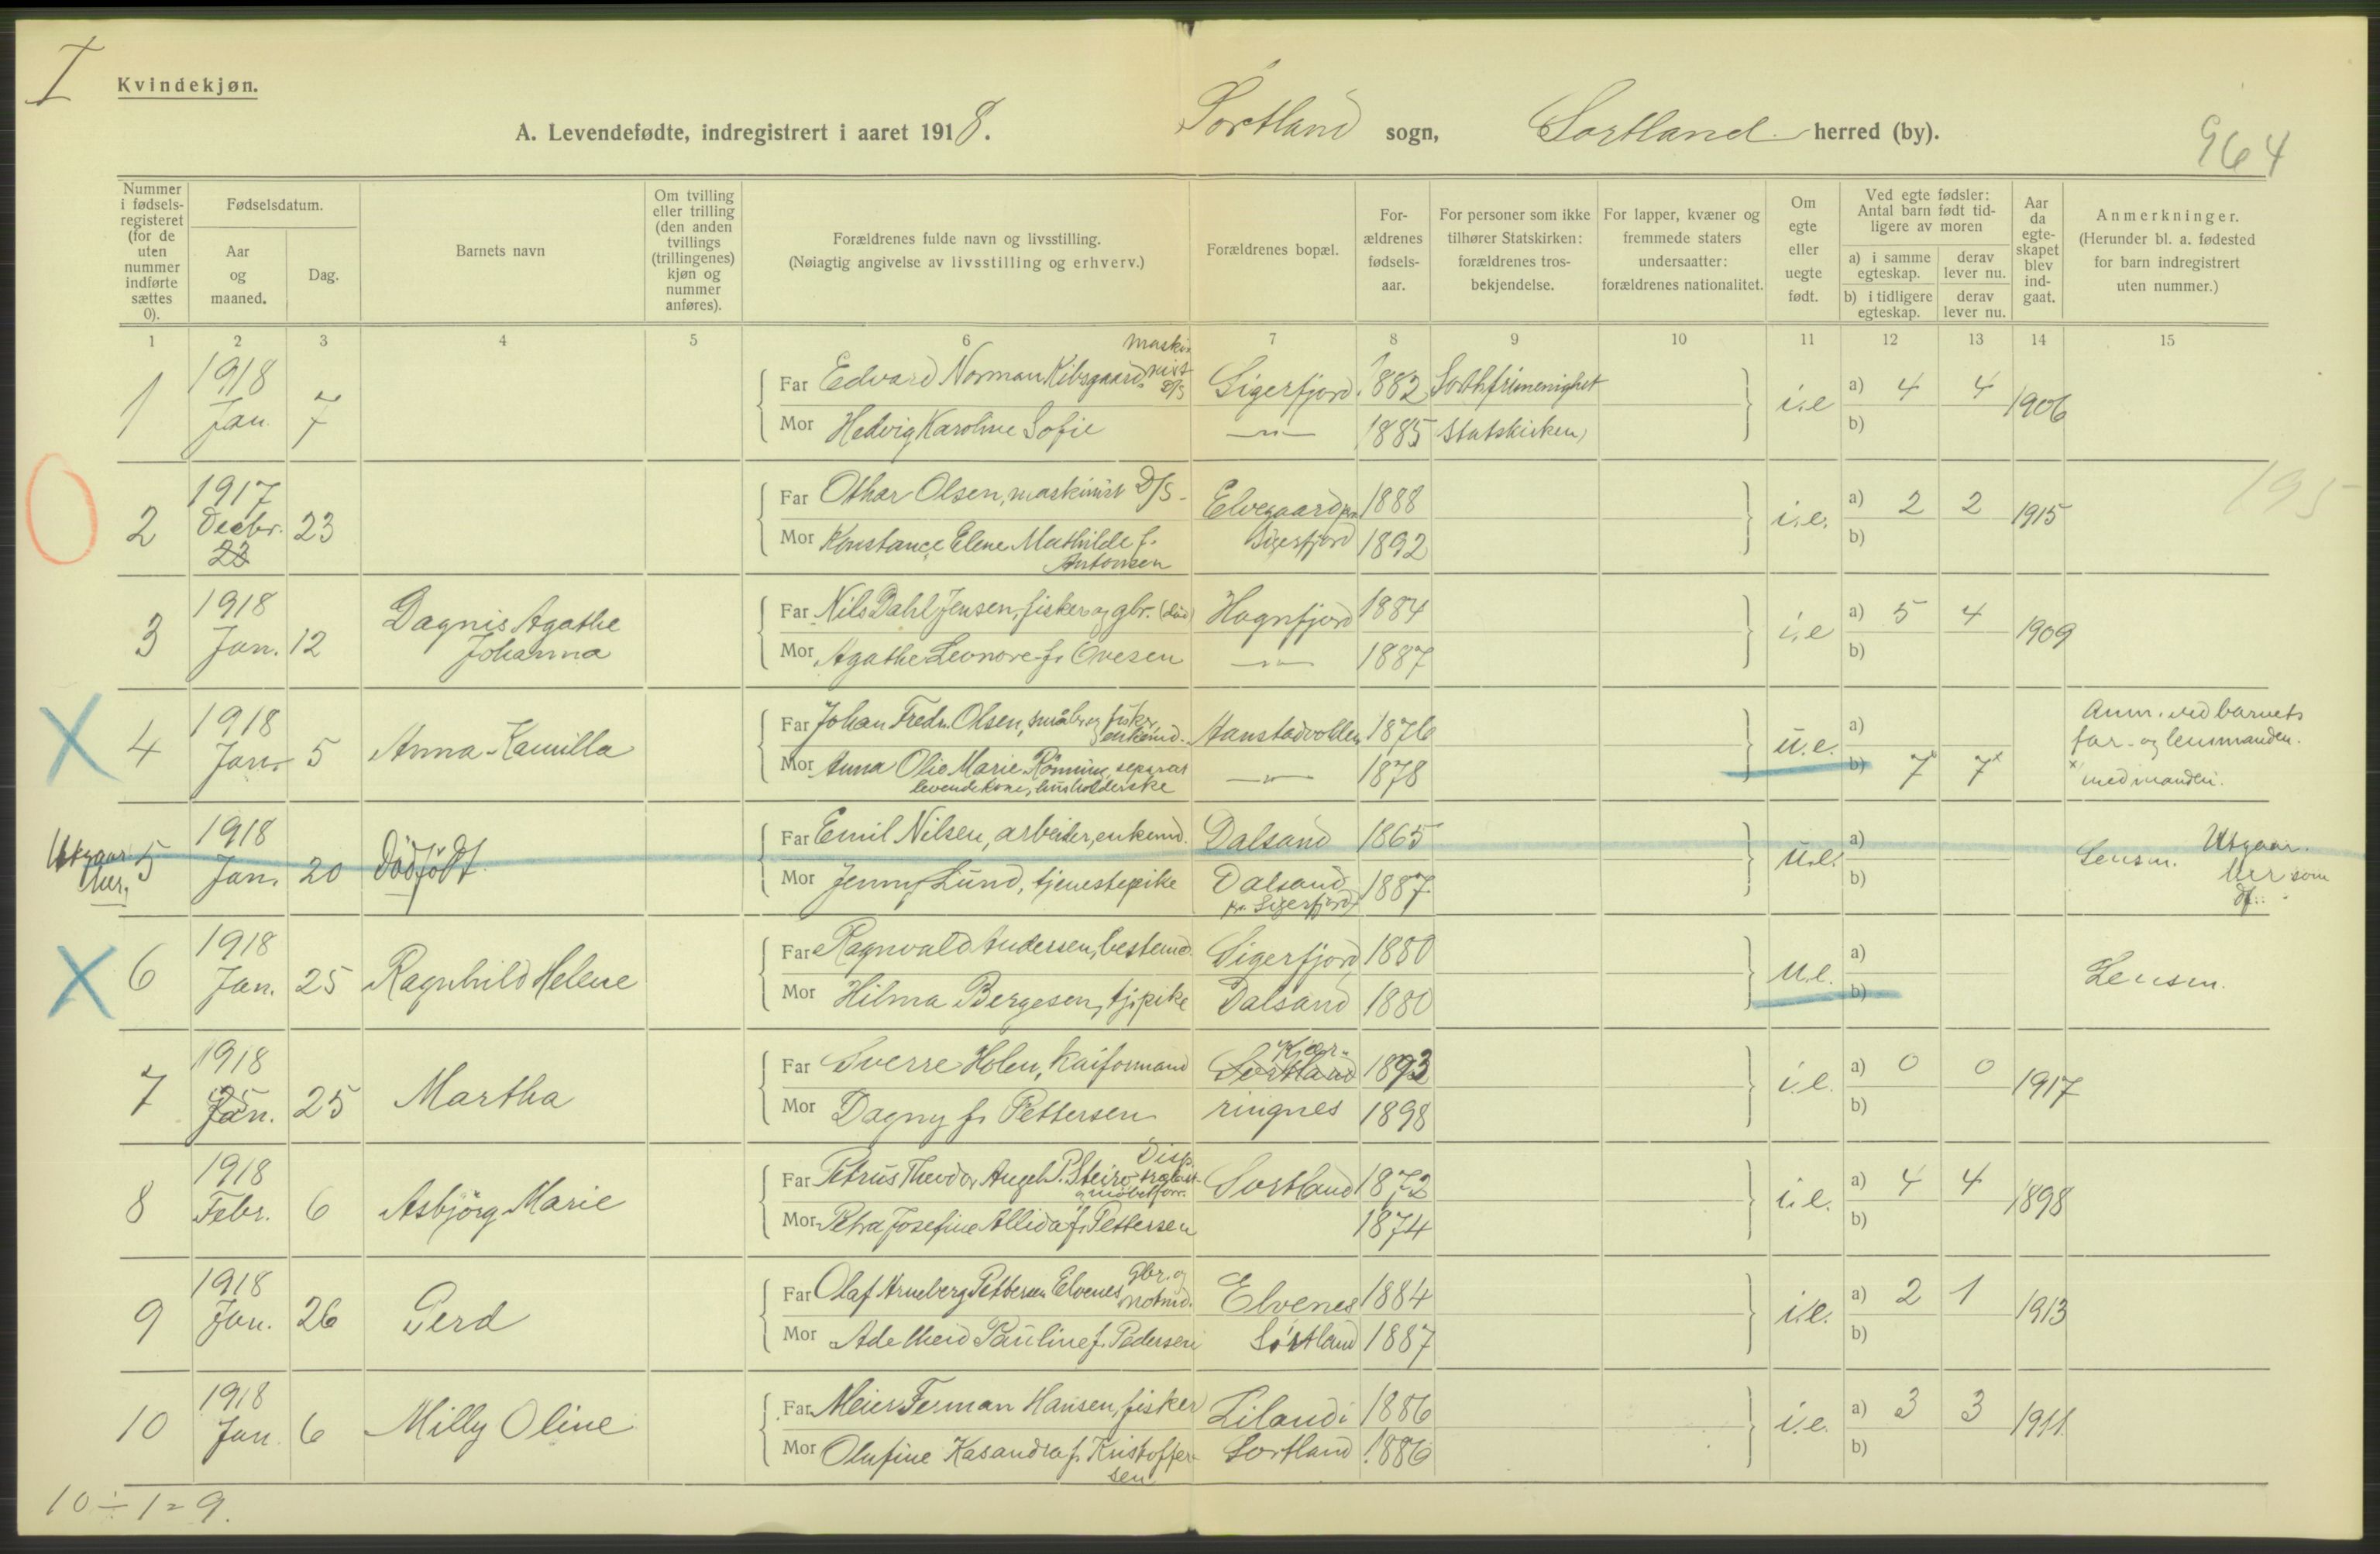 I
Kvindekjøn.
A. Levendefødte, indregistrert i aaret 1918.
Sortland sogn, Sortland herred (by).
964
Nummer i fødsels-registeret (for de uten nummer indførte sættes 0).
Fødselsdatum.
Aar og maaned.
Dag.
Barnets navn
Om tvilling eller trilling (den anden tvillings (trillingenes) kjøn og nummer anføres).
Forældrenes fulde navn og livsstilling.
(Nøiagtig angivelse av livsstilling og erhverv.)
Forældrenes bopæl.
For-ældrenes fødsels-aar.
For personer som ikke tilhører Statskirken: forældrenes tros-bekjendelse.
For lapper, kvæner og fremmede staters undersaatter: forældrenes nationalitet.
Om egte eller uegte født.
Ved egte fødsler: Antal barn født tid-ligere av moren
a) i samme egteskap.
derav lever nu.
b) i tidligere egteskap.
derav lever nu.
Aar da egte-skapet blev ind-gaat.
Anmerkninger.
(Herunder bl. a. fødested for barn indregistrert uten nummer.)
1 2 3 4 5 6 7 8 9 10 11 12 13 14 15
1 1918 Jan. 7
Far Edvard Norman Kibsgaard, maskinist D/S Sigerfjord. 1882 Forthfrimenighet
Mor Hedvig Karoline Sofie —"— 1885 Statskirken
i.e a) 4 4 1906
b)
2 1917 Decbr. 23 23
Far Othar Olsen, maskinist D/S - Elvegaard pr. 1888
Mor Konstance Elene Mathilde f. Antonsen Sigerfjord 1892
i.e. a) 2 2 1915
b)
195
3 1918 Jan. 12 Dagnis Agathe Johanna
Far Nils Dahl Jensen, fisker og gbr. (død) Hognfjord 1884
Mor Agathe Leonore f. Ovesen —"— 1887
i.e a) 5 4 1909
b)
4 1918 Jan. 5 Anna Kamilla
Far Johan Fredr. Olsen, småbr. og fisker, enkemd. Hanstadvolden 1876
Mor Anna Olie Marie Rønning, separat levende kone, husholderske —"— 1878
u.e. a)
b) 7x 7x
Anm. ved barnets far- og lensmanden.
x med manden.
Utgaar her, 5 1918 Jan. 20 Dødfødt
Far Emil Nilsen, arbeider, enkemd. Dalsand 1865
Mor Jenny Lund, tjenestepike Dalsand pr. Sigerfjord 1887
u.e. a)
b)
Lensm. Utgaar her som df.
6 1918 Jan. 25 Ragnhild Helene
Far Ragnvald Andersen, bestemd. Sigerfjord 1880
Mor Hilma Bergesen, tj.pike Dalsand 1880
u.e. a)
b)
Lensm.
7 1918 Jan. 25 Martha
Far Sverre Holen, kaiformand Sortland Kjær- 1893
Mor Dagny f. Pettersen ringnes 1898
i.e. a) 0 0 1917
b)
8 1918 Febr. 6 Asbjörg Marie
Far Petrus Theodor Angel P. Steiro, Disp. Sortland 1872
Mor Petra Josefine Allida f. Pettersen 1874
i.e. a) 4 4 1898
b)
9 1918 Jan. 26 Gerd
Far Olaf Arneberg Pettersen Elvenes, gbr. og notmd. Elvenes 1884
Mor Adelheid Pauline f. Pedersen Sortland 1887
i.e. a) 2 1 1913
b)
10 1918 Jan. 6 Milly Oline
Far Meier Ferman Hansen, fisker Liland i 1886
Mor Olufine Kasandra f. Kristoffersen Sortland 1886
i.e. a) 3 3 1911
b)
10 ÷ 1 = 9.